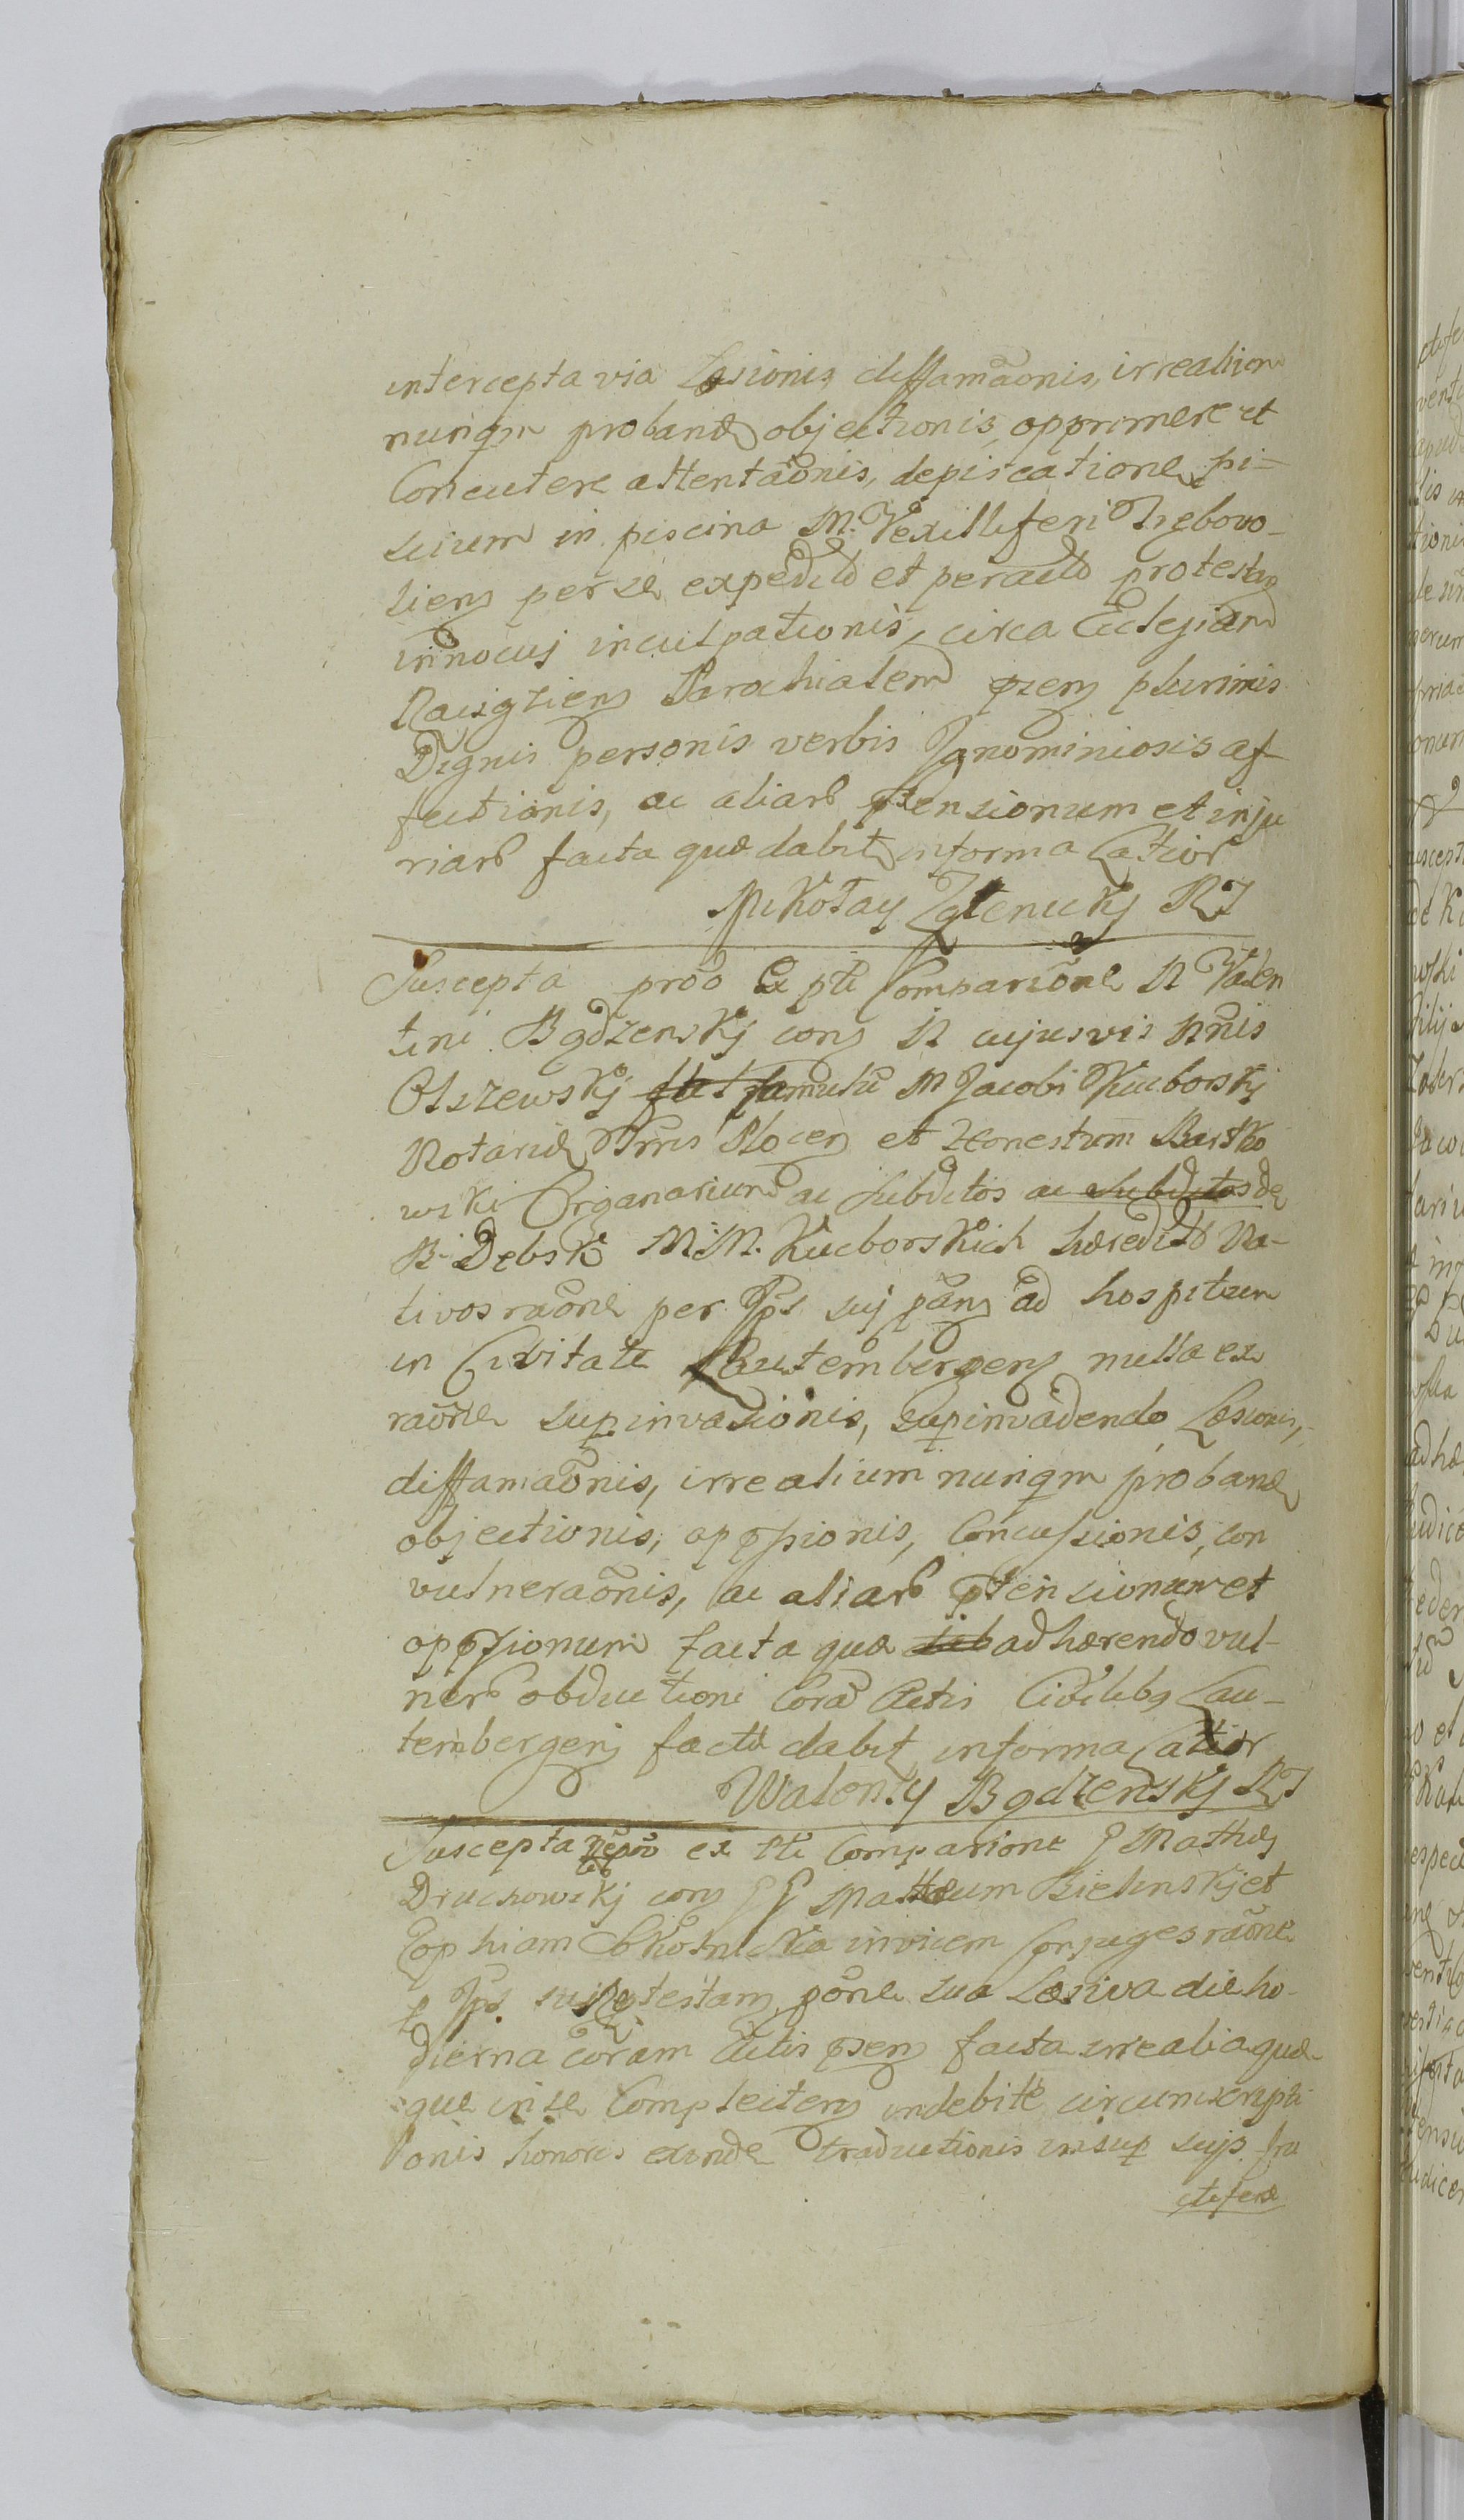 intercepta via Læsionis diffamãonis, irrealium
nunqm probandæ objectionis, opprimere et
Concutere attentãonis, depiscatione pi=
scium in piscina M. Vexilliferi Trębovo-
liens per se expedita et peracta protestans
innocuj inculpationis, circa Ecclesiam
Raciąziens Parochialem præsens plurimis
Dignis personis verbis Ignominiosis af-
fectionis, ac aliarũ ptensionum et inju
riarũ facta quæ dabit in forma Latior
Mikołay Zglenicky RJ
Suscepta proõ Ex pte Comparione N Valen
tini Bądzensky cons N cujusvis Nñis
Olszewskj famulũ M Jacobi Kucborskj
Notarij Trris Plocens et Honestum Bartko
wski Organarium ac subditos ac subditos de
B: Dębsk MM. Kucborskich hæreditõ Na-
tivos raõne per Ips suj pãns ad hospitium
in Civitate Lautembergens nulla ex
raõne supinvasionis, supinvadendo Læsionis,
diffamaõnis, irrealium nunqm probandæ
objectionis, oppssionis, Concussionis, con
vulneraõnis, ac aliarũ ptensionum et
oppssionum facta quæ adhærendo vul-
nerũ obductioni Corã Actis Civilibus Lau-
tembergens factæ dabit in forma Latior
Walenty Bądzensky RJ
Suscepta reproõ ex pte Comparione G Mathiæ
Druchowskj cons GG Mathæum Bielinskj et
Zophiam Skotnicka invicem Conjuges raõne
p Ips suj ptestans põne sua Læsiva die ho-
dierna coram Actis psens facta irrealia quæ-
que in se Complectens indebite circumscripti
onis honoris exinde traductionis insup sujp fru
ctiferæ